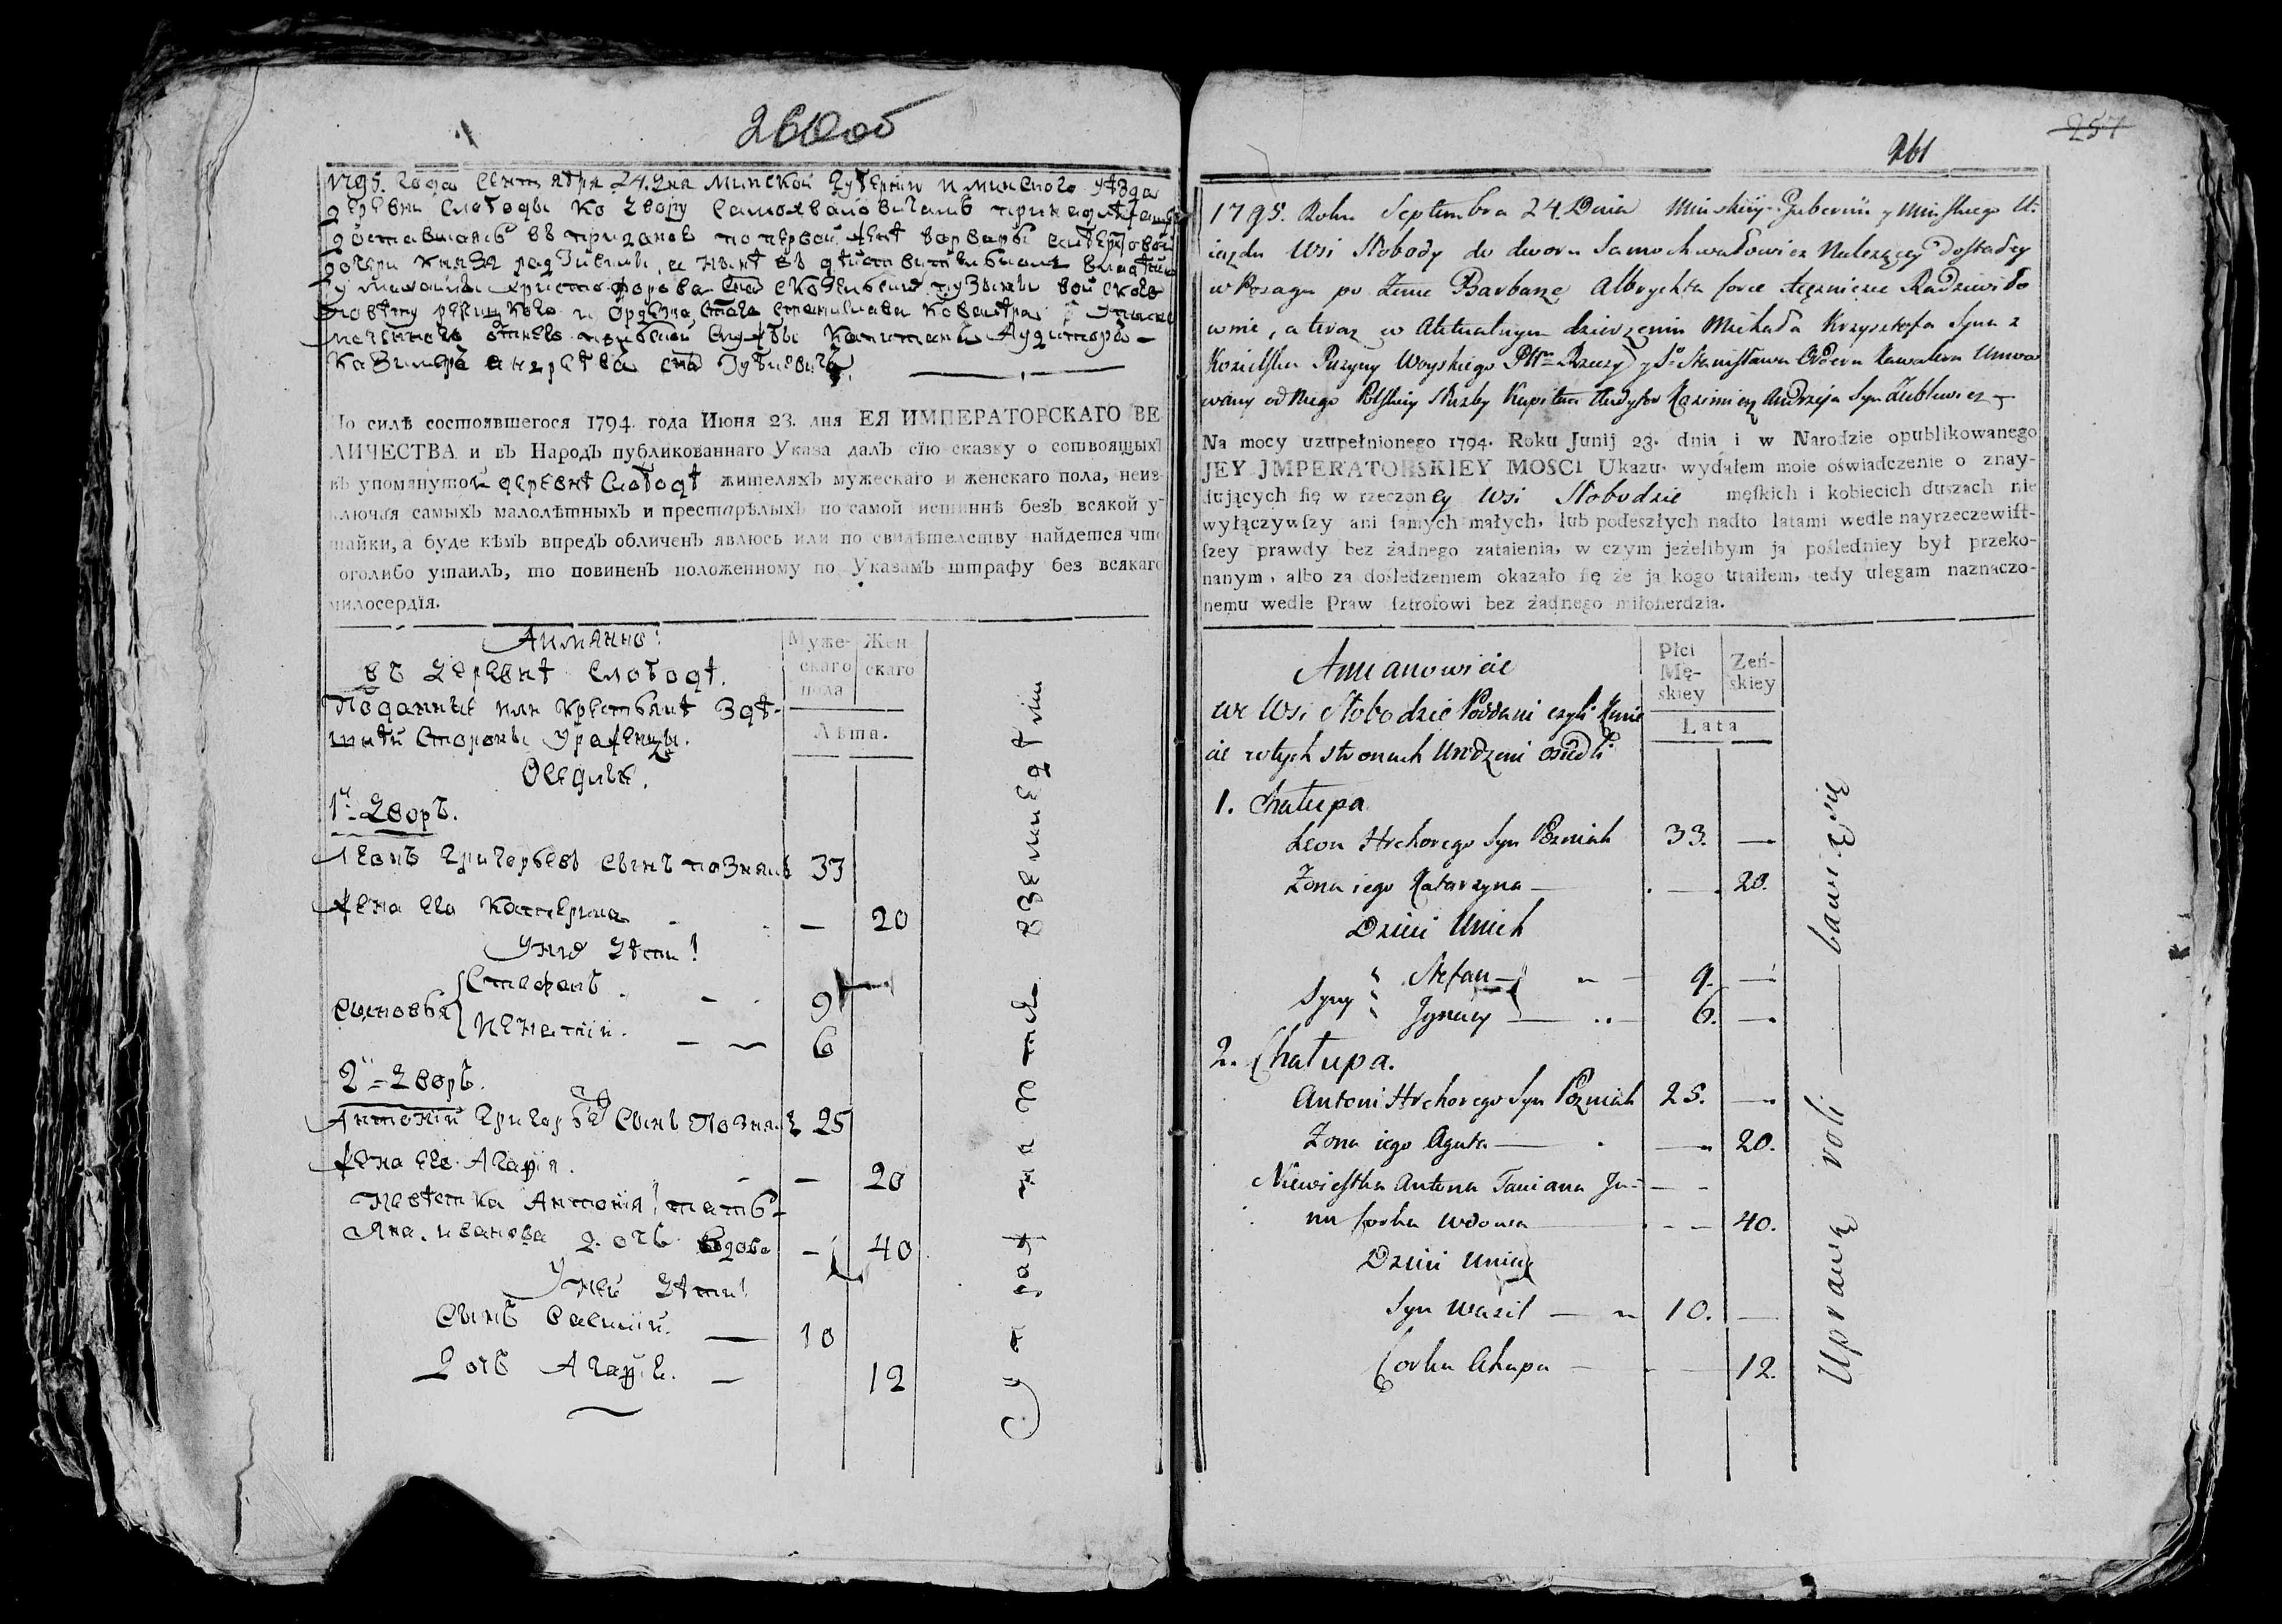 260об
1795. года Сентября 24. дна Минской Губернии и минского уѣзда
деревни Слободы ко двору самохваловичамъ принадлѣжащей
доставшаясь въ приданое по первой женѣ варвары албертовой
дочери князя радзивила, а нынѣ въ дѣйствительномъ владѣнии
у михаила христофорова сна скозельска пузыны войского
повѣту речицкого и ордена стого станислава ковалера
отнего польской службы капитанъ Аудиторъ
казимеръ андреѣвъ снъ
По силѣ состоявшегося 1794. года Июня 23. дня ЕЯ ИМПЕРАТОРСКАГО ВЕ
ЛИЧЕСТВА и въ Народъ публикованнаго Указа далъ сїю сказку о состоящыхъ
въ упомянутой деревнѣ Слободѣ жителяхъ мужескаго и женскаго пола, неиз-
ключая самыхъ малолѣтныхъ и престарѣлыхъ по самой истиннѣ безъ всякой у-
тайки, а буде кѣмъ впредъ обличенъ явлюсь или по свидѣтелству найдется что
оголибо утаилъ, то повиненъ положенному по Указамъ штрафу без всякаго
милосердїя.
Аимянно:
въ деревнѣ слободѣ.
Поданные или крестьянѣ здѣ-
шнѣй стороны уроженцы.
Оседлые.
Муже-
скаго
пола
Жен
скаго
Лѣта.
1й дворъ.
Леонъ григорьевъ сынъ познякъ 33
жена его катерына — 20
У них дѣти!
сыновья
Стефанъ 9
Игнатий. 6
2й дворъ.
Антоний григорьевъ сынъ познякъ 25
жена его Агафия. — 20
невѣстка Антония! тать-
яна. иванова дочь вдова — 40
У ней дѣти!
Сынъ василий. 10
дочь Агафия. — 12
Суда на житье взвенигъ рии
261
257
1795. Roku Septembra 24. Dnia Minskiey Gubernii y Minskiego U-
iazdu Wsi Słobody do dworu Samochwałowicz Należącey dostałey
w Posagu po Żenie Barbarze Albrychta corce Xięzniczce Radziwiło
wnie, a teraz w Aktualnym dzierzeniu Michała Krzysztofa Syna z
Kozielska Puzyny Woyskiego Pttu Rzeczy y So Stanisława Ordera Kawalera Umoco
wany od Niego Polskiey Służby Kapitan Audytor Kazimierz Andrzeja Syn
Na mocy uzupełnionego 1794. Roku Junij 23. dnia i w Narodzie opublikowanego
JEY JMPERATORSKIEY MOSCI Ukazu, wydałem moie oświadczenie o znay-
duiących ſię w rzeczoney Wsi Słobodzie męſkich i kobiecich duszach nie
wyłączywſzy ani ſamych małych, lub podeszłych nadto latami wedle nayrzeczewiſt-
ſzey prawdy bez żadnego zataienia, w czym jeżelibym ja pośledniey był przeko-
nanym, albo za dośledzeniem okazało ſię że ja kogo utaiłem, tedy ulegam naznaczo-
nemu wedle Praw ſztrofowi bez żadnego miłoſierdzia.
Amianowicie
we Wsi Słobodzie Poddani czyli Kmie
cie w tych stronach Urodzeni osiedli
Płci
Mę-
skiey
Zeń-
skiey
Lata
1. Chałupa
Leon Hrehorego Syn Pozniak 33. —
Żona iego Katarzyna — . — 20.
Dzieci Unich
Syny
Stefan — 9. —
Jgnacy — 6. —
2. Chałupa.
Antoni Hrehorego Syn Pozniak 25. —
Żona iego Agata — — 20.
Niewiestka Antona Taciana Ja-
na corka wdowa — 40.
Dzieci Uniey
Syn Wasil — 10. —
Corka Ahapa — 12.
Uprawą roli — bawi się